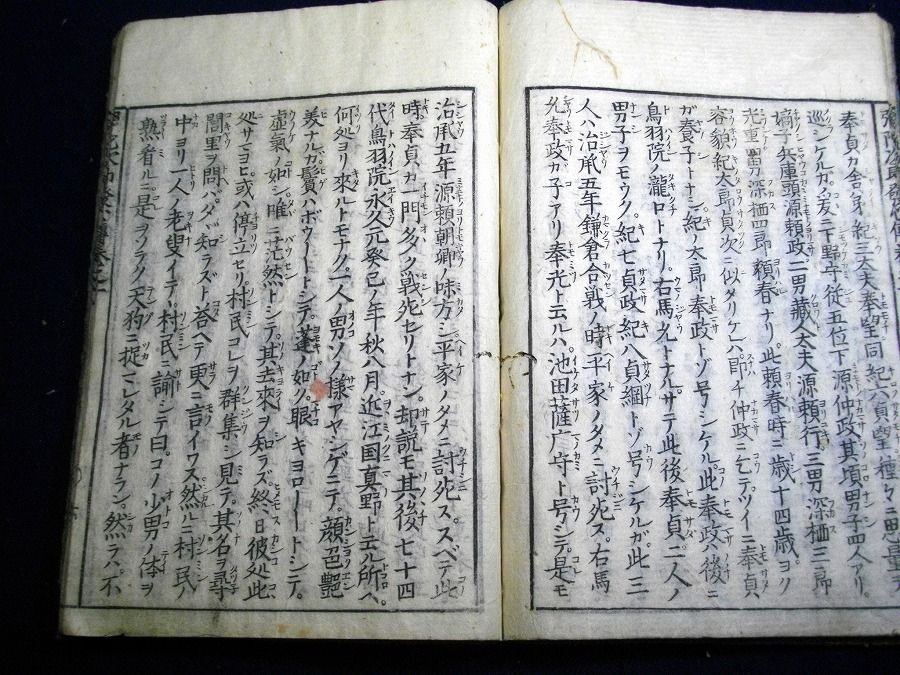 奉貞カ舎弟紀三大夫奉望同紀八貞望種々ニ思量ヲ
巡シケルガ爰ニ下野守従五位下源仲政其項男子四人アリ
嫡子兵庫頭源頼政二男藏人太夫源頼行三男深栖三郎
光重四男深栖四郎頼春ナリ此頼春時ニ歳十四歳ヨク
容貌紀太郎貞次ニ似タリケレハ即チ仲政ニ乞テツイニ奉貞
ガ養子トナシ紀ノ太郎奉政トゾ号シケル此奉政ハ後ニ
鳥羽院ノ瀧口トナリ右馬允トナルサテ此後奉貞二人ノ
男子ヲモウク紀七貞政紀八貞綱トゾ号シケルガ此三
人ハ治承五年鎌倉合戦ノ時平家ノタメニ討死ス右馬
允奉政カ子アリ奉光ト云ルハ池田薩广ノ守ト号シテ是モ
治承五年源頼朝卿ノ味方シ平家ノタメニ討死ススベテ此
時奉貞カ一門多ク戦死セリトナン却説モ其後七十四
代鳥羽院永久元癸巳ノ年秋八月近江国真野ト云ル所ヘ
何処ヨリ來ルトモナク一人ノ男ソノ様アヤシゲニテ顔色艶
美ナルカ鬢ハボウ〱トシテ蓬ノ如ク眼キヨロ〱トシテ
虚氣ノ如シ唯ニ茫然トシテ其去來ヲ知ラズ終日彼処此
処サマヨヒ或ハ停立セリ村民コレヲ群集シ見テ其名ヲ尋
閭里ヲ問バタバ知ラズト答ヘテ更ニ言イワス然ルニ村民ノ
中ヨリ一人ノ老叟イデ村民ニ諭シテ曰コノ少男ノ体ヲ
熟看ルニ是ヲソラク天狗ニ捉ミレタル者ナラン然ラハ不